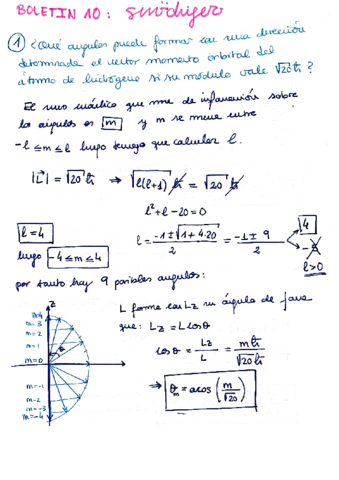 BOLETIN 10: Schrödinger
① ¿Qué angulos puede formar con una dirección
determinada el vector momento orbital del
átomo de hidrógeno si su módulo vale √20 ħ ?
El nus cuántico que me de información sobre
los angulos es m y m se mueve entre
-l ≤ m ≤ l luego tengo que calcular l.
|L⃗| = √20 ħ ⇒ √l(l+1) ħ = √20 ħ
l² + l - 20 = 0
l = 4
l = -1 ± √1+4·20 / 2 = -1 ± 9 / 2
4
-5
l > 0
luego -4 ≤ m ≤ 4
por tanto hay 9 posibles angulos:
L forma con Lz un ángulo de
que: Lz = L cos θ
cos θ = Lz / L = mħ / √20 ħ
⇒ θm = acos (m / √20)
z
m=4
m=3
m=2
m=1
θ
m=0
m=-1
m=-2
m=-3
m=-4